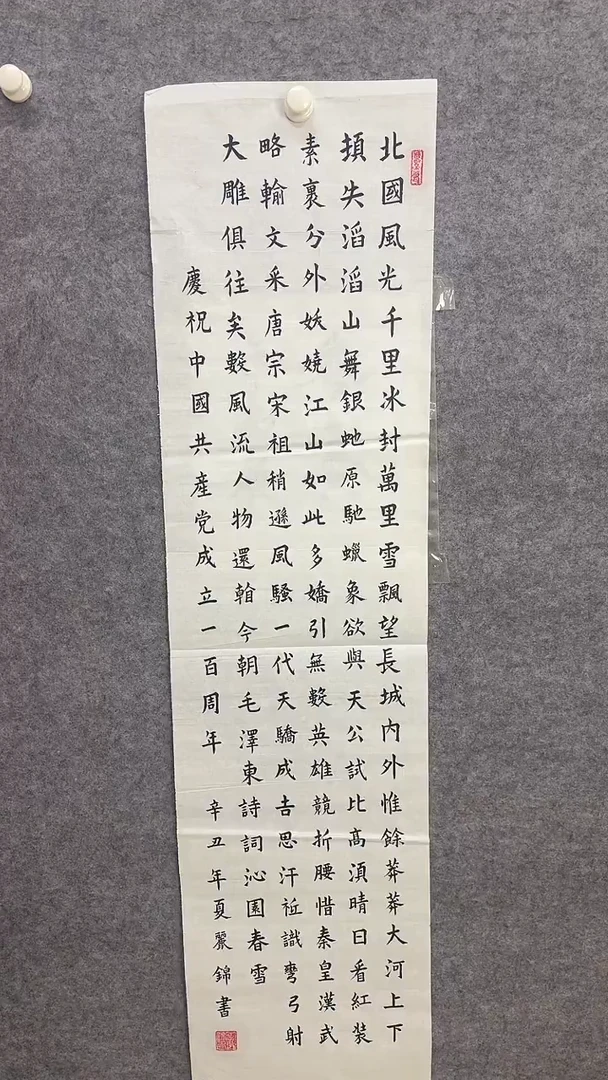 北國風光千里冰封萬里雪飄望長城內外惟餘莽莽大河上下
頓失滔滔山舞銀虵原馳蠟象欲與天公試比高湏晴日看紅装
素裹分外妖嬈江山如此多嬌引無數英雄競折腰惜秦皇漢武
略輸文采唐宗宋祖稍遜風騷一代天驕成吉思汗祗識彎弓射
大雕俱往矣數風流人物還看今朝毛澤東詩詞沁園春雪
慶祝中國共產党成立一百周年 辛丑年夏麗錦書